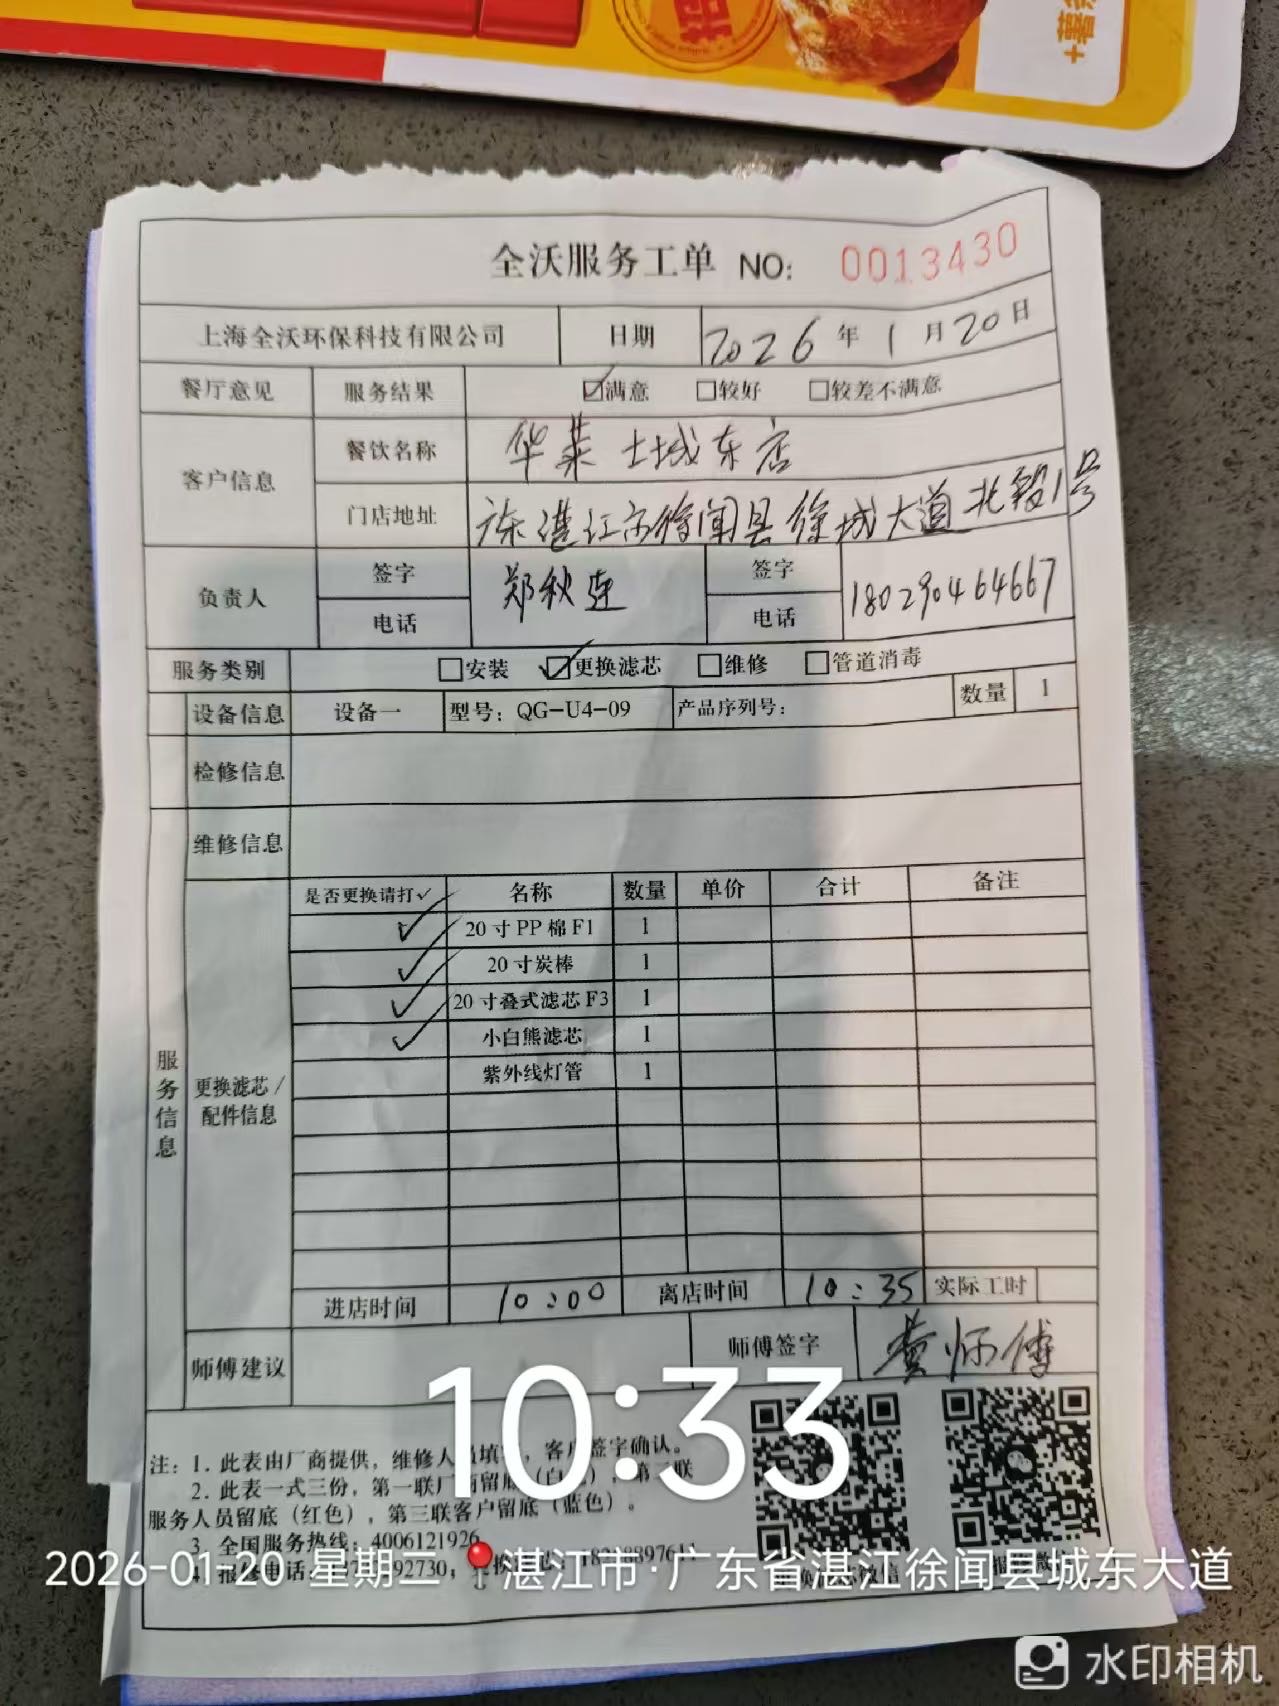 +薯条
全沃服务工单 NO: 0013430
上海全沃环保科技有限公司 日期 2026年1月20日
餐厅意见 服务结果 ☑满意 □较好 □较差不满意
客户信息 餐饮名称 华莱士城东店
门店地址 广东湛江市徐闻县徐城大道北段1号
负责人 签字 郑秋连 签字
电话 电话 180290464667
服务类别 □安装 ☑更换滤芯 □维修 □管道消毒
设备信息 设备一 型号：QG-U4-09 产品序列号： 数量 1
检修信息
维修信息
服务信息
更换滤芯/配件信息
是否更换请打✓ 名称 数量 单价 合计 备注
✓ 20寸PP棉F1 1
✓ 20寸炭棒 1
✓ 20寸叠式滤芯F3 1
✓ 小白熊滤芯 1
紫外线灯管 1
进店时间 10:00 离店时间 10:35 实际工时
师傅建议 师傅签字 黄师傅
10:33
注：1. 此表由厂商提供，维修人员填 客户签字确认。
2. 此表一式三份，第一联厂商留底（白 ），第二联
服务人员留底（红色），第三联客户留底（蓝色）。
3. 全国服务热线：4006121926
4. 报修电话： 92730；
2026-01-20 星期二 湛江市·广东省湛江徐闻县城东大道
水印相机